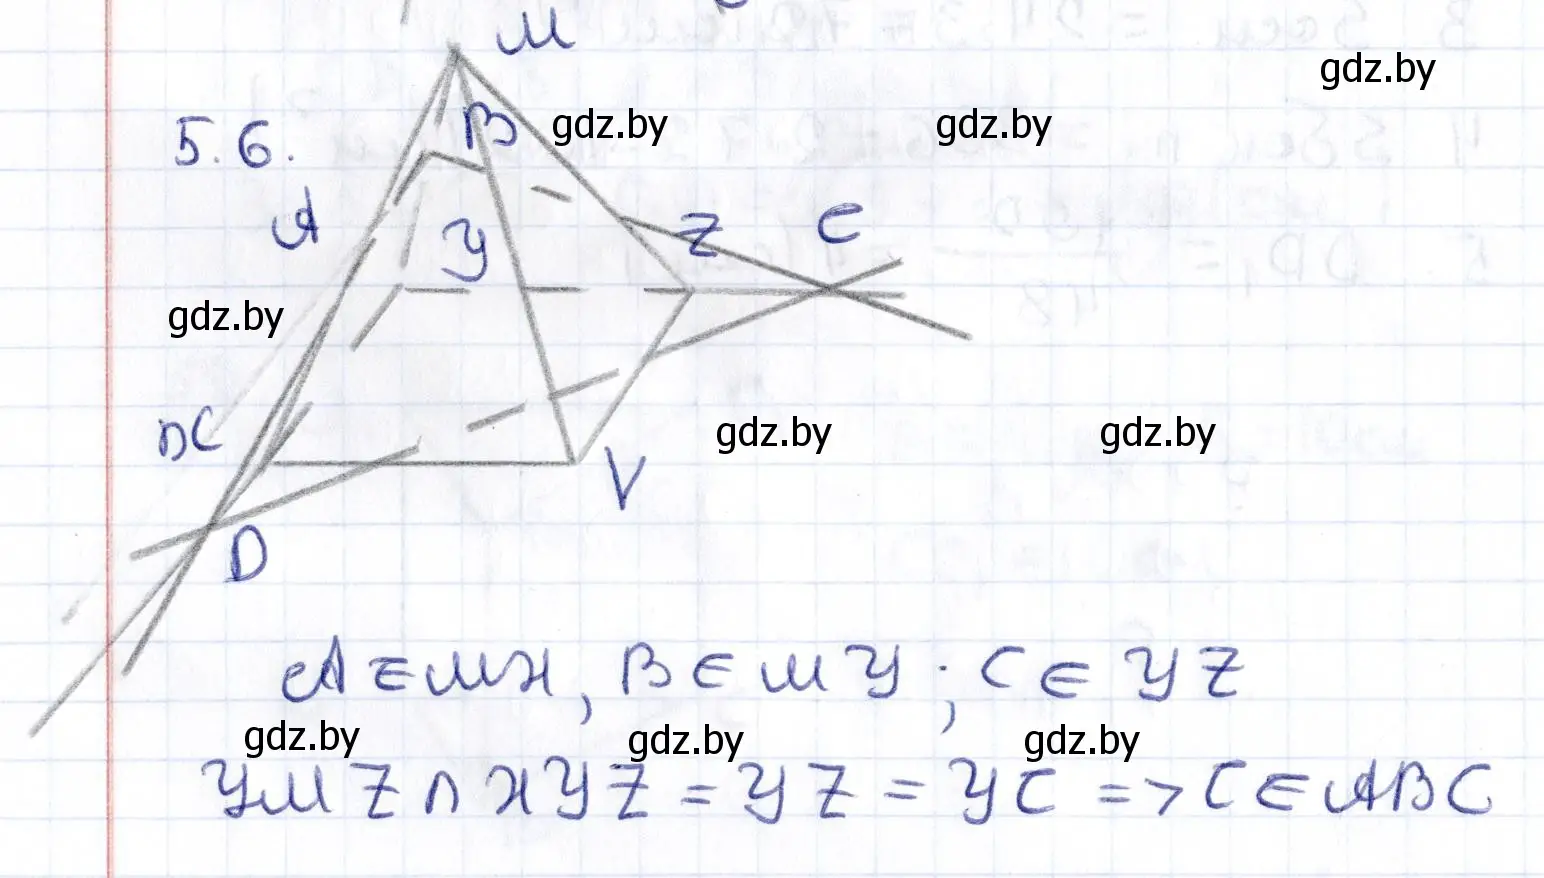 M
gdz.by
B gdz.by gdz.by
5.6.
A
Y Z C
gdz.by
X gdz.by gdz.by
V
D
A ∈ MX, B ∈ MY; C ∈ YZ
gdz.by gdz.by gdz.by
YMZ ∩ XYZ = YZ = YC => C ∈ ABC